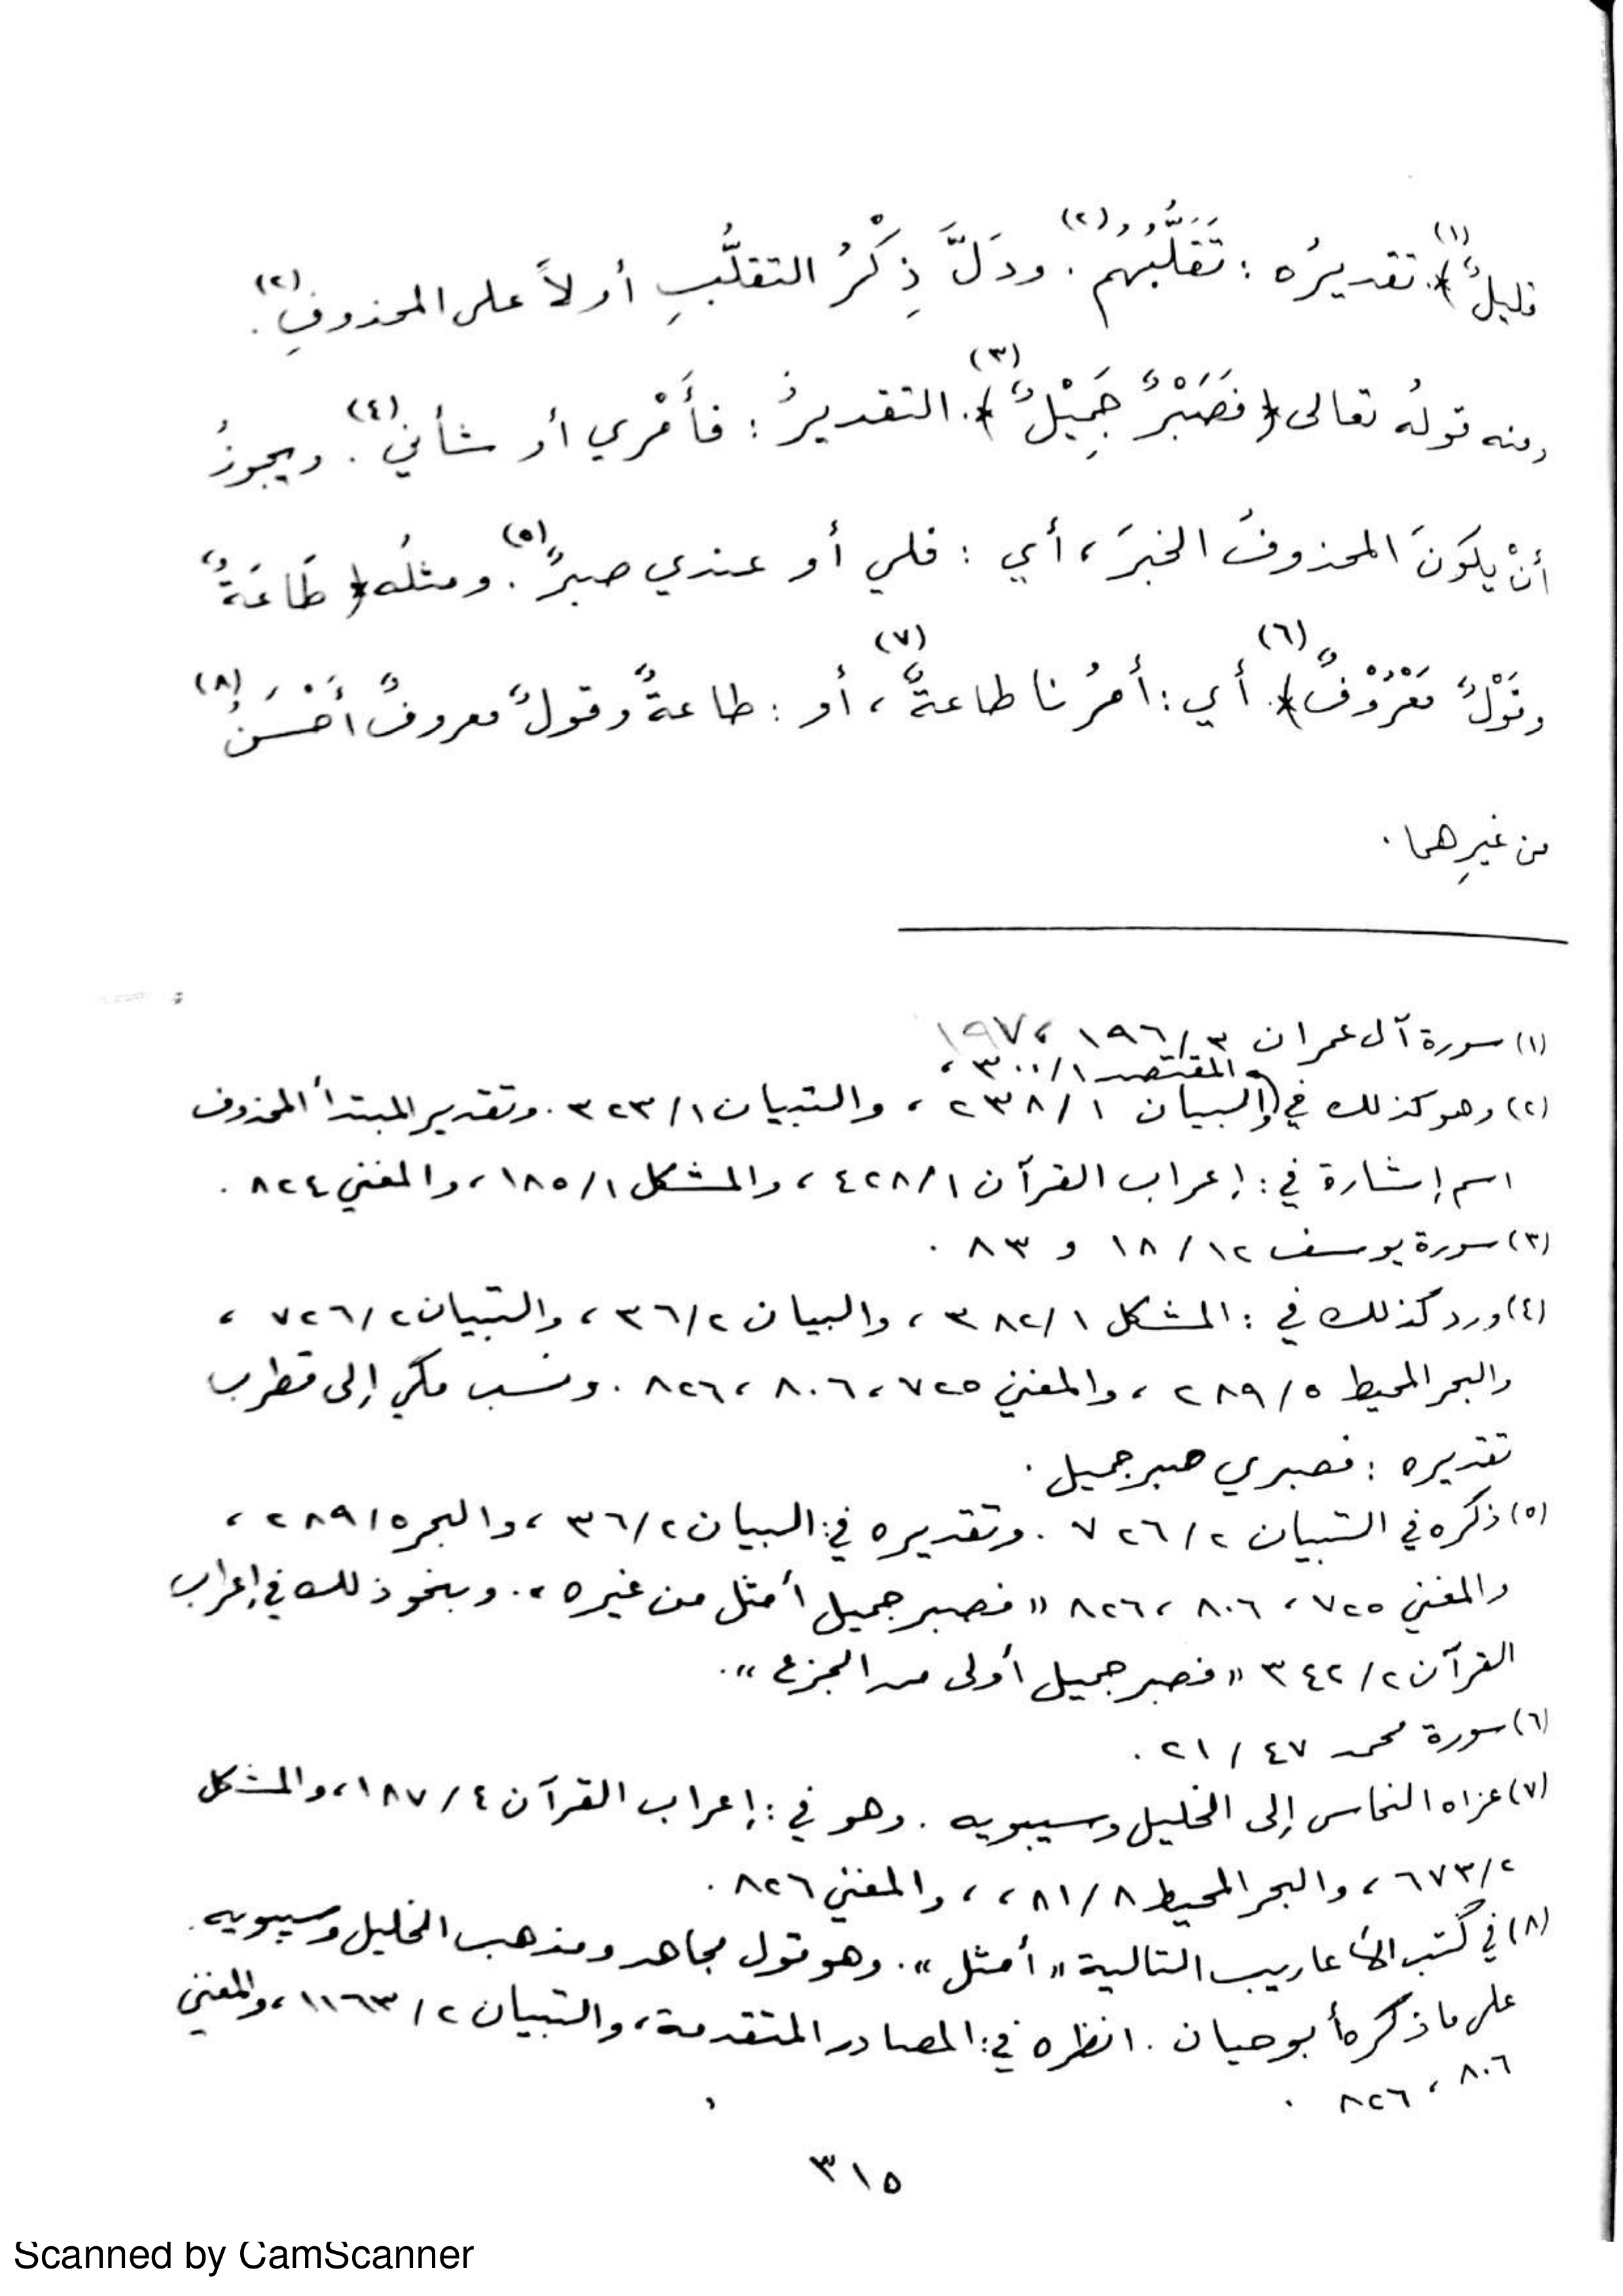 قليلٌ﴾(١). تقديرُه : تَقَلُّبُهُم(٢). ودَلَّ ذِكْرُ التقلُّبِ أولاً على المحذوفِ(٢).
ومنه قولُه تعالى ﴿فَصَبْرٌ جَمِيْلٌ﴾(٣). التقديرُ : فأَمْري أو شأني(٤). ويجوزُ
أنْ يكونَ المحذوفُ الخبرَ، أي : فلي أو عندي صبرٌ(٥). ومثلُه ﴿طَاعَةٌ
وقَوْلٌ مَعْرُوْفٌ﴾(٦). أي : أمرُنا طاعةٌ(٧)، أو : طاعةٌ وقولٌ معروفٌ أَحْسَنُ(٨)
من غيرِهما .
(١) سورة آل عمران ٣/١٩٦، ١٩٧
والمقتصد ٣٠٠/١،
(٢) وهو كذلك في والبيان ٢٣٨/١ ، والتبيان ٣٢٣/١. وتقدير المبتدأ المحذوف
اسم إشارة في : إعراب القرآن ٤٢٨/١ ، والمشكل ١٨٥/١، والمغني ٨٢٤ .
(٣) سورة يوسف ١٨/١٢ و ٨٣ .
(٤) ورد كذلك في : المشكل ٣٨٢/١ ، والبيان ٣٦/٢ ، والتبيان ٧٢٦/٢ ،
والبحر المحيط ٢٨٩/٥ ، والمغني ٧٢٥، ٨٠٦، ٨٢٦ . ونسب مكي إلى قطرب
تقديره : فصبري صبر جميل .
(٥) ذكره في التبيان ٧٢٦/٢ . وتقديره في: البيان ٣٦/٢ ، والبحر ٢٨٩/٥ ،
والمغني ٧٢٥، ٨٠٦، ٨٢٦ « فصبر جميل أمثل من غيره ». وبنحو ذلك في إعراب
القرآن ٣٤٢/٢ « فصبر جميل أولى من الجزع ».
(٦) سورة محمد ٤٧ / ٢١ .
(٧) عزاه النحاس إلى الخليل وسيبويه . وهو في : إعراب القرآن ١٨٧/٤، والمشكل
٦٧٣/٢ ، والبحر المحيط ٨١/٨ ، ، والمغني ٨٢٦ .
(٨) في كتب الأعاريب التالية « أمثل ». وهو قول مجاهد ومذهب الخليل وسيبويه.
على ما ذكره أبو حيان . انظره في: المصادر المتقدمة، والتبيان ١١٦٣/٢، والمغني
٨٠٦ ، ٨٢٦ .
٣١٥
Scanned by CamScanner